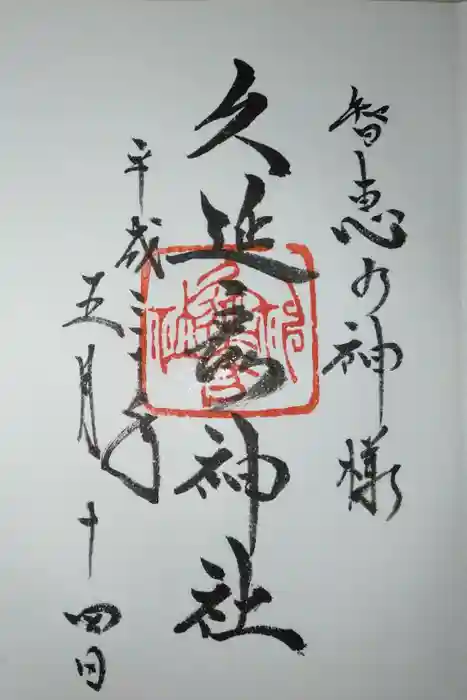 智恵乃神様
久延彦神社
平成三十年
五月十四日